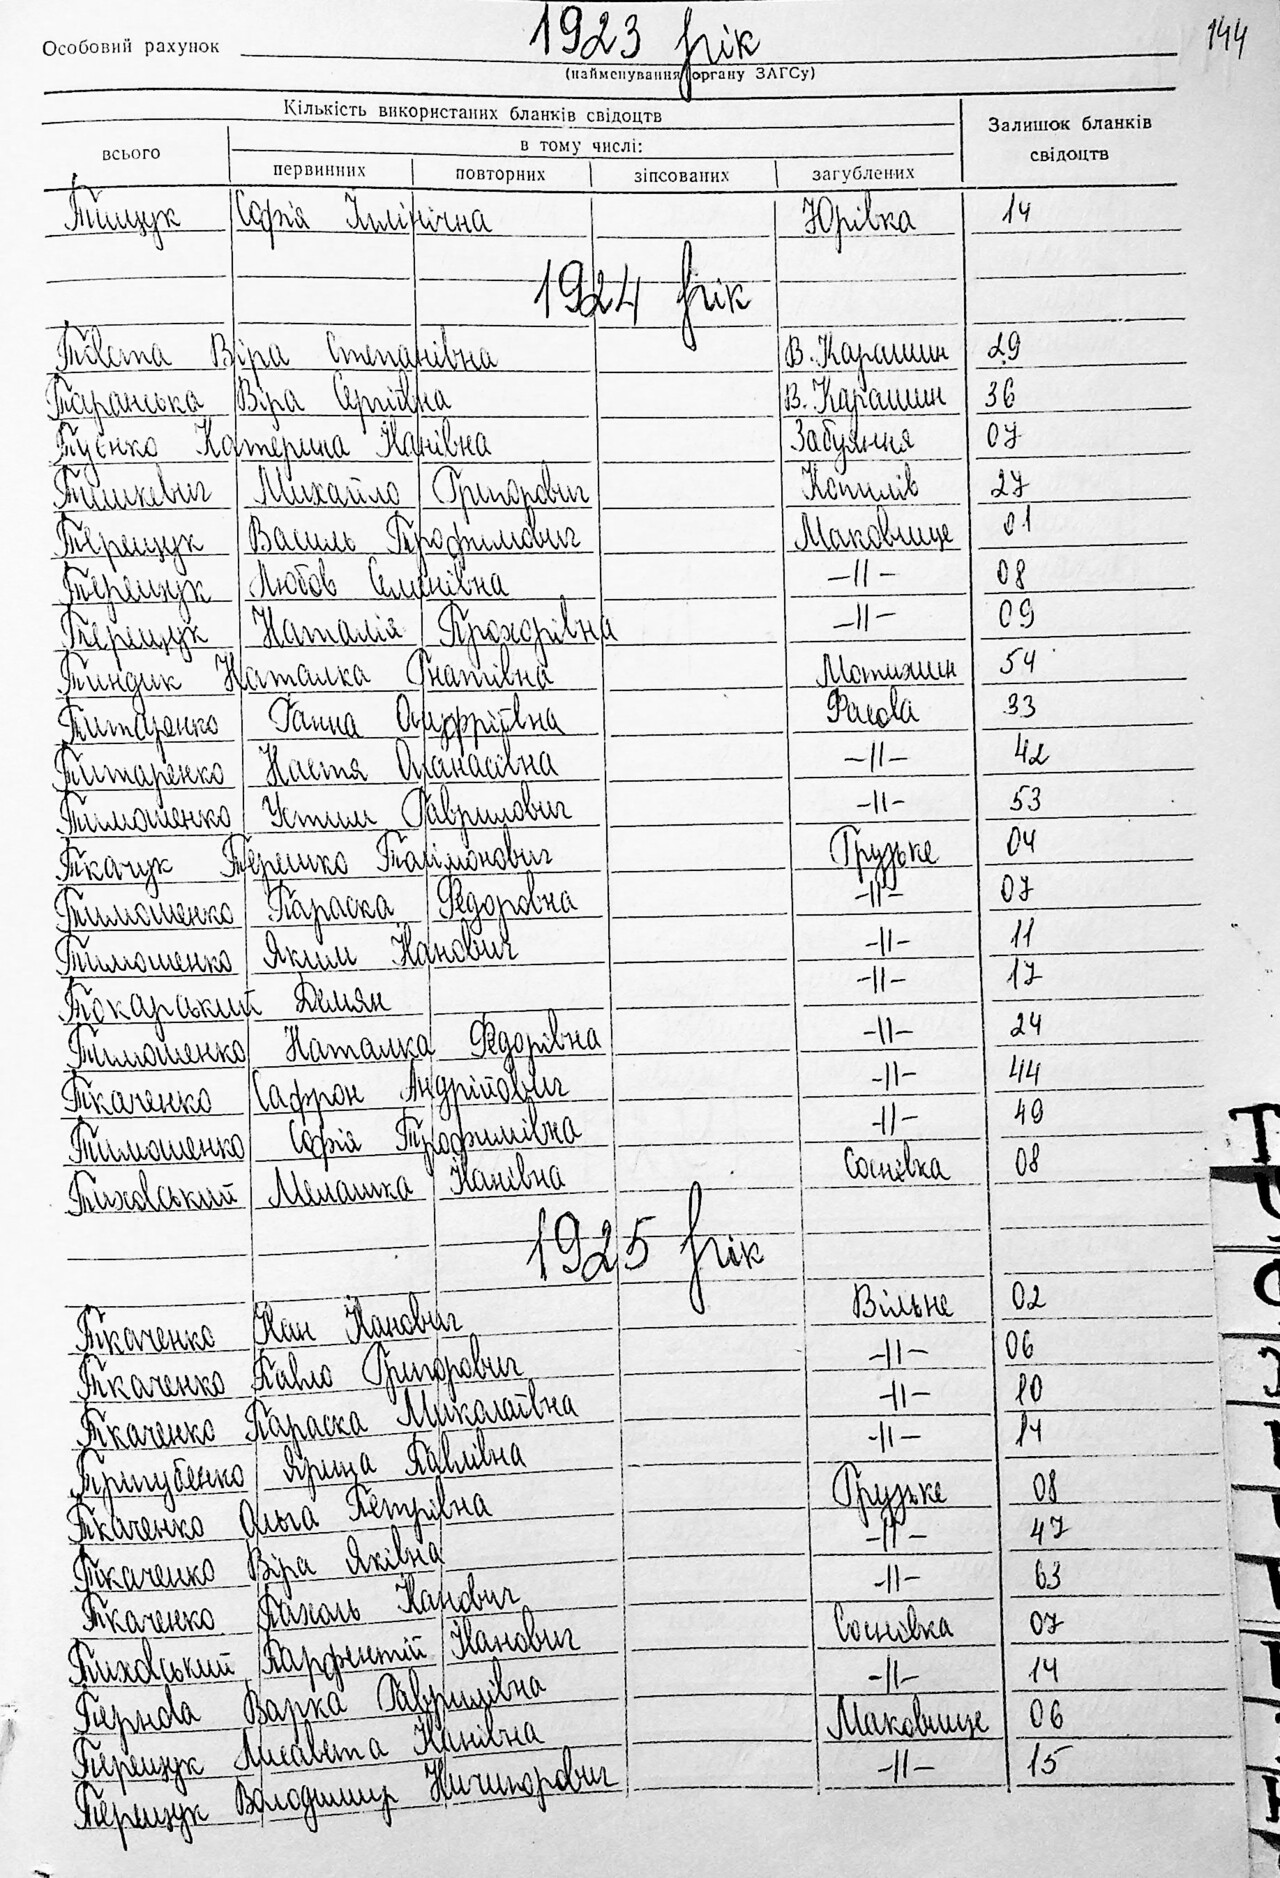 144
1923 рік
Особовий рахунок
(найменування органу ЗАГСу)
Кількість використаних бланків свідоцтв
Залишок бланків свідоцтв
всього
в тому числі:
первинних повторних зіпсованих загублених
Тищук Софія Іллінічна Юрівка 14
1924 рік
Віра Степанівна В. Карашин 29
Таранська Віра Сергіївна В. Карашин 36
Катерина Іванівна Забуяння 07
Тишкевич Михайло Григорович Копилів 27
Терещук Василь Трофимович Маковище 01
Терещук Любов Семенівна -||- 08
Терещук Наталія Прохорівна -||- 09
Тиндик Наталка Гнатівна Мотижин 54
Титаренко Ганна Онуфріївна Фасова 33
Титаренко Настя Опанасівна -||- 42
Тимошенко Устим Гаврилович -||- 53
Ткачук Терешко Грузьке 04
Тимошенко Параска Федоровна -||- 07
Тимошенко Яким Іванович -||- 11
Токарський Демян -||- 17
Тимошенко Наталка Федорівна -||- 24
Ткаченко Сафрон Андрійович -||- 44
Тимошенко Софія Трофимівна -||- 49
Тиховський Мелашка Іванівна Соснівка 08
1925 рік
Ткаченко Іван Іванович Вільне 02
Ткаченко Павло Григорович -||- 06
Ткаченко Параска Миколаївна -||- 10
Ярина Павлівна -||- 14
Ткаченко Ольга Петрівна Грузьке 08
Ткаченко Віра Яківна -||- 47
Ткаченко Іванович -||- 63
Тиховський Парфентій Іванович Соснівка 07
Тернова Варка Гаврилівна -||- 14
Терещук Лисавета Іванівна Маковище 06
Терещук Володимир Ничипорович -||- 15